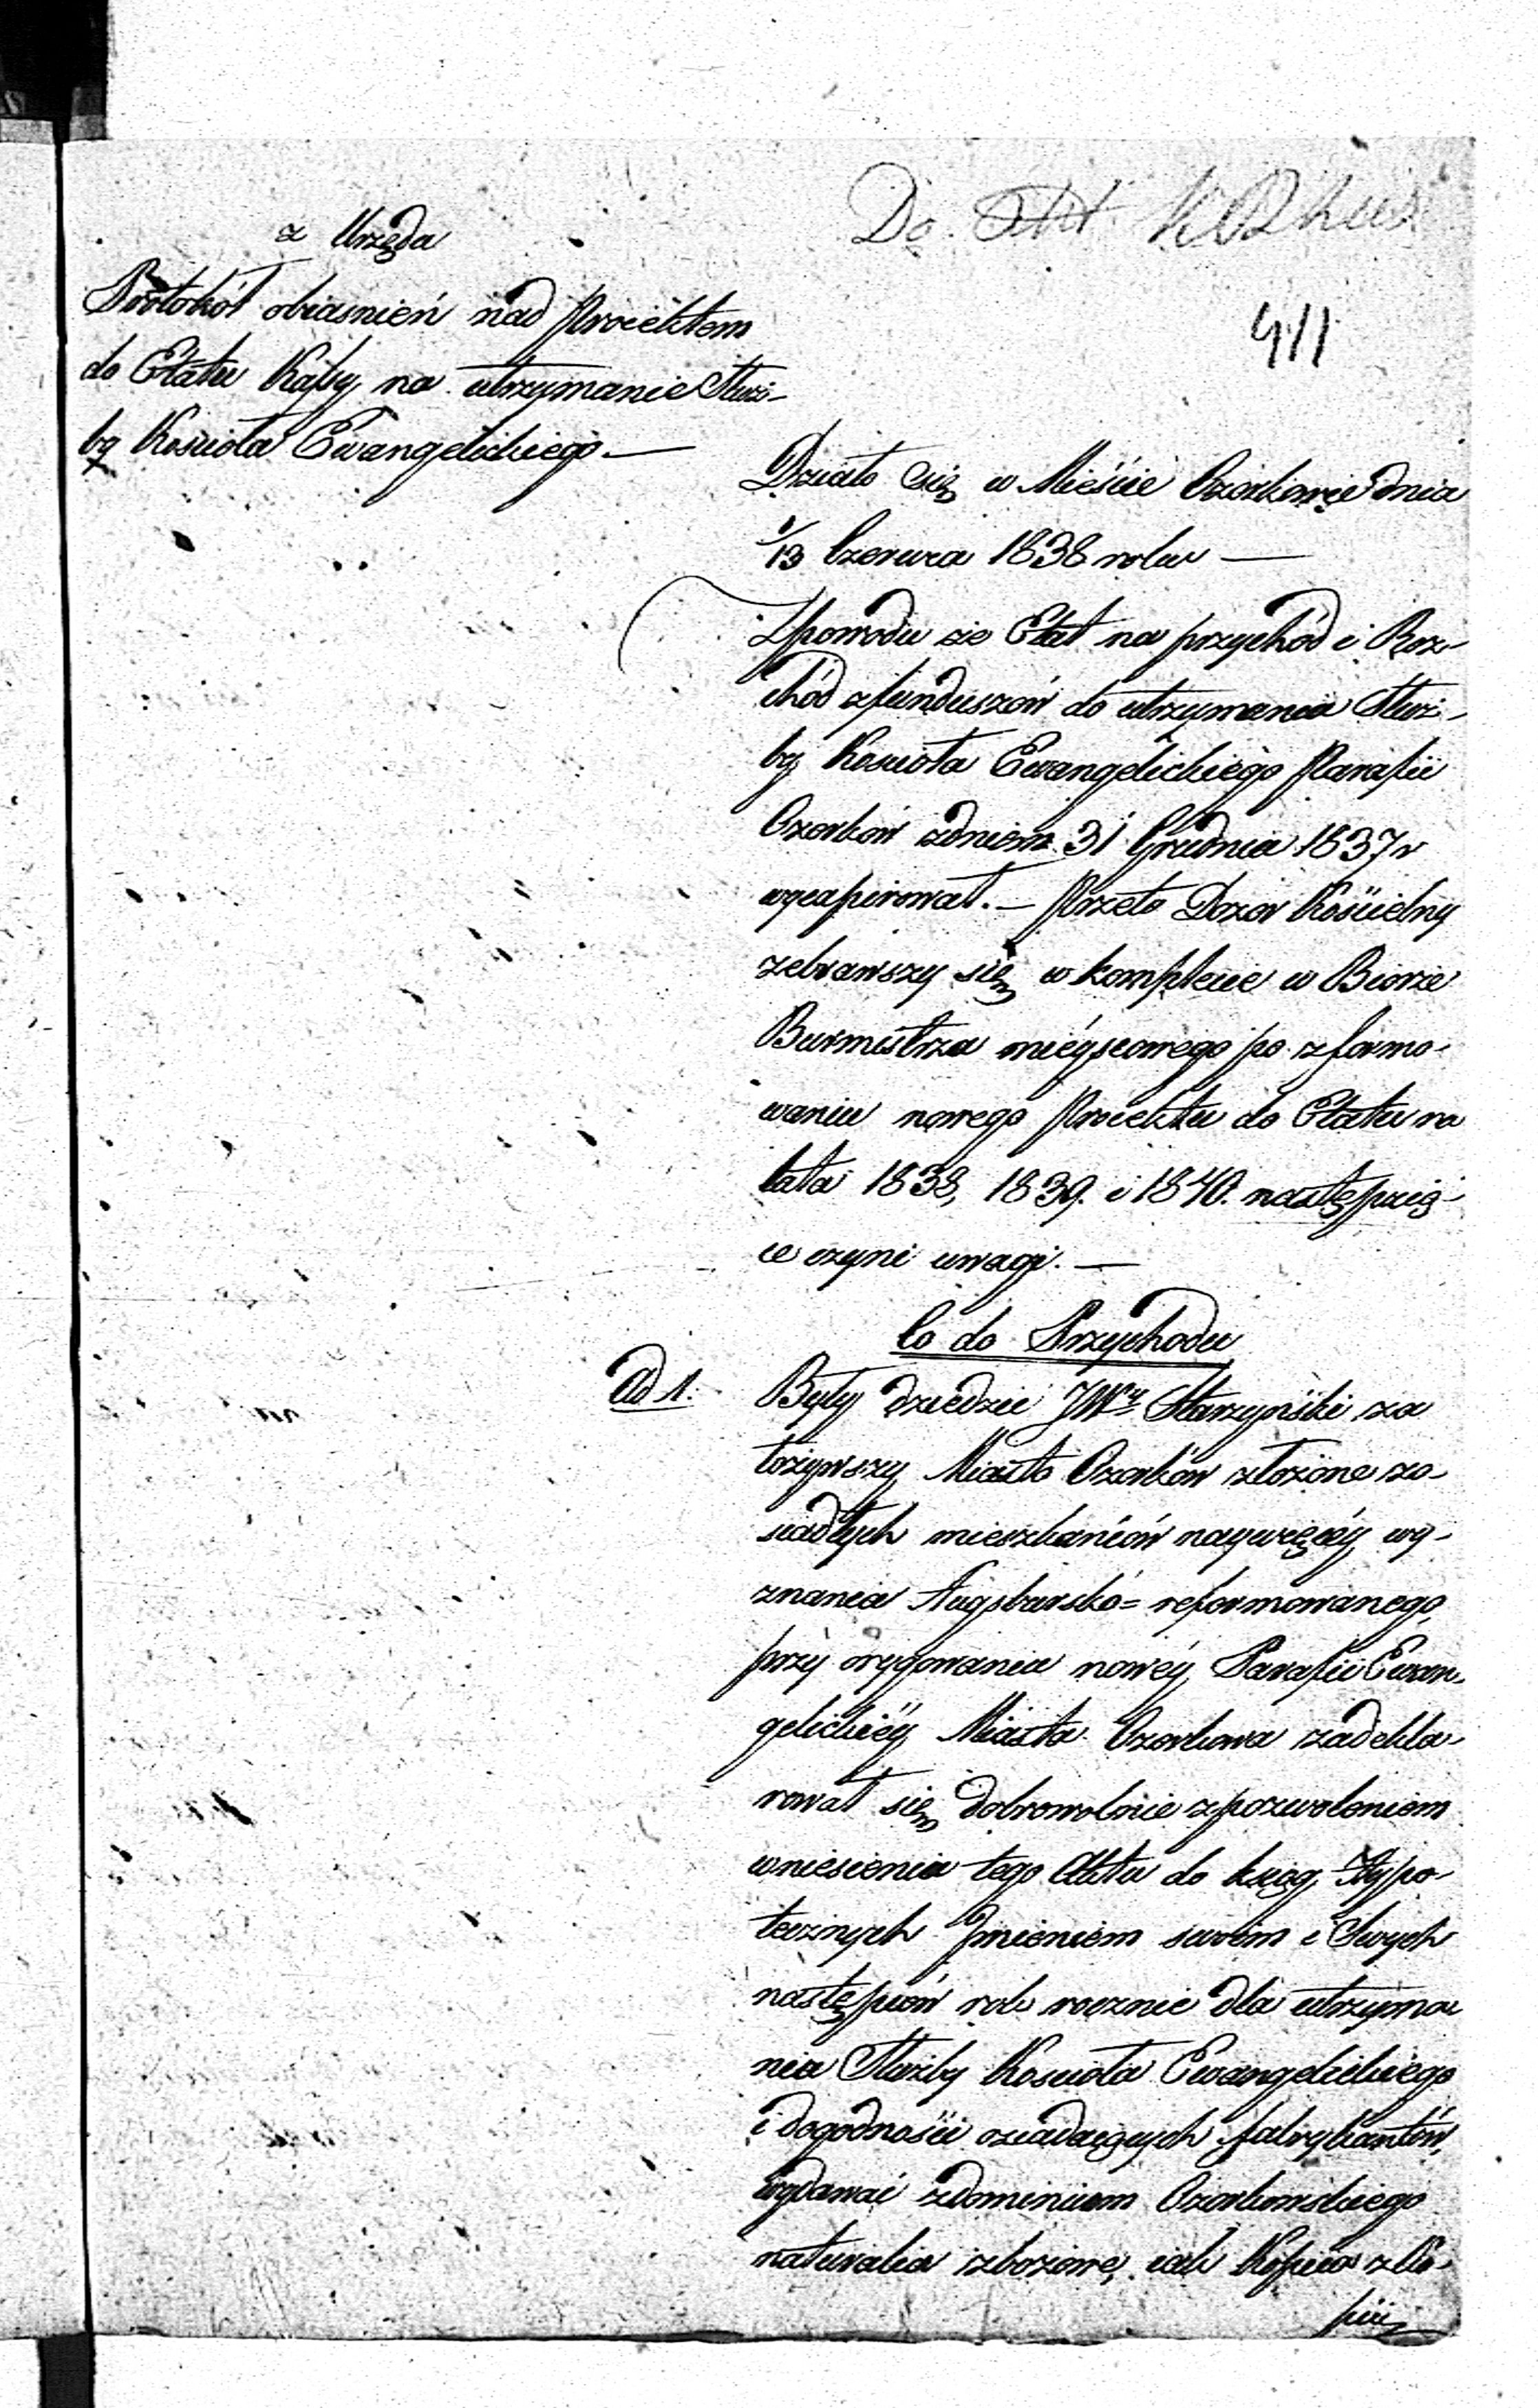 z Urzędu
Protokół obiasnień nad Proiektem
do Etatu Kassy na utrzymanie Służ-
by Kościoła Ewangelickiego. —
Do
411
Działo się w Mieście Ozorkowie dnia
1/13 Czerwca 1838 roku —
Zpowodu że Etat na przychód i Roz-
chód zfunduszów do utrzymania Służ-
by Kościoła Ewangelickiego Parafii
Ozorków zdniem 31 Grudnia 1837 r
wyexpirował. — Przeto Dozor Kościelny
zebrawszy się w komplecie w Biorze
Burmistrza mieyscowego po zformo-
waniu nowego Proiektu do Etatu na
lata 1838, 1839. i 1840. następuią-
ce czyni uwagi. —
Co do Przychodu
Ad 1. Były dziedzic JW Starzyński za
łożywszy Miasto Ozorków złożone zo-
siadłych mieszkańców naywięcéy wy-
znania Augsbursko= reformowanego,
przy erygowaniu nowéy Parafii Ewan-
gelickiéy Miasta Ozorkowa zadekla-
rował się dobrowolnie zpozwoleniem
wniesienia tego Aktu do ksiąg Hypo-
tecznych Jmieniem swoim i Swych
następców rok rocznie dla utrzyma
nia Służby Kościoła Ewangelickiego
i dogodności osiadaiących fabrykantów,
wydawać zdominium Ozorkowskiego
naturalia zbożowe, iak Kopia zko-
pii